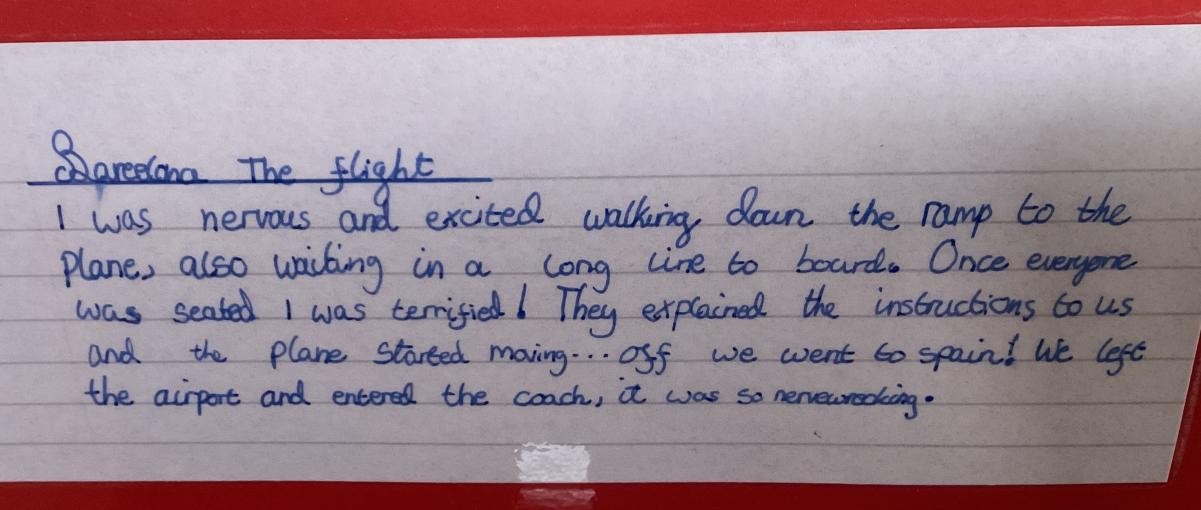 Barcelona The flight
I was nervous and excited walking down the ramp to the
plane, also waiting in a long line to board. Once everyone
was seated I was terrified! They explained the instructions to us
and the plane started moving... off we went to spain! We left
the airport and entered the coach, it was so nervewrecking.